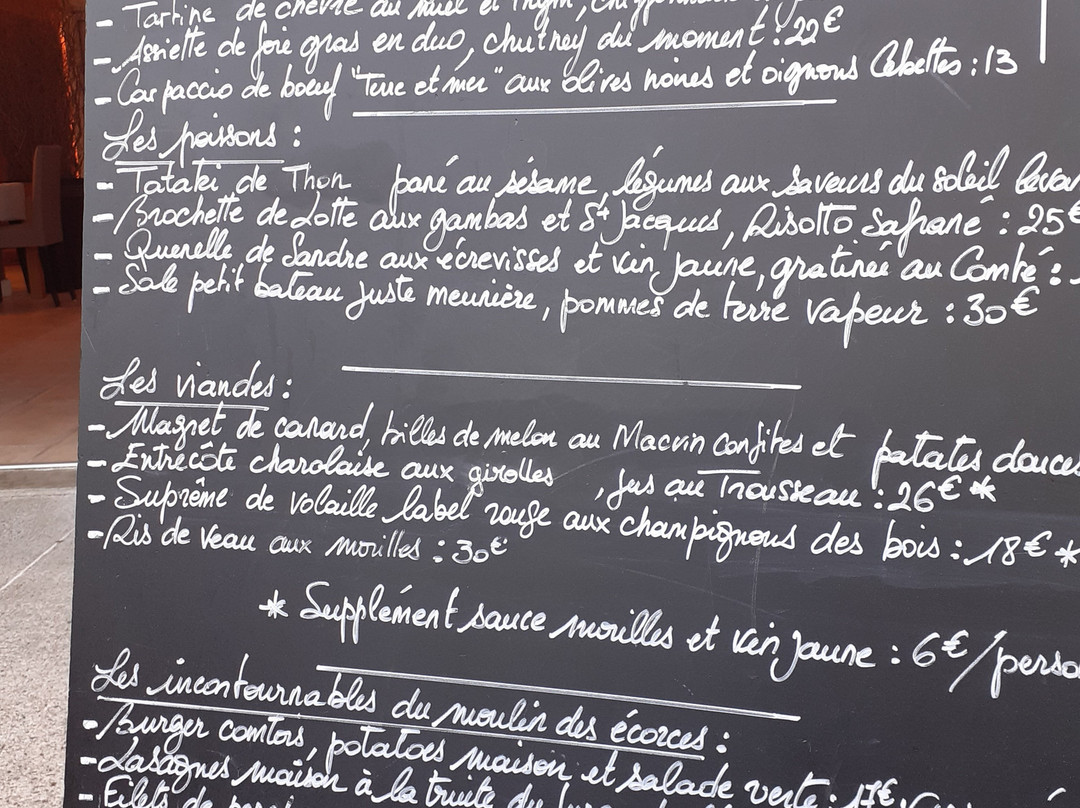 - Tartine de chèvre au miel et thym,
- Assiette de foie gras en duo, chutney du moment : 22€
- Carpaccio de boeuf "Terre et mer" aux olives noires et oignons Cebettes : 13
Les poissons :
- Tataki de Thon pané au sésame, légumes aux saveurs du soleil levan
- Brochette de Lotte aux gambas et St Jacques, Risotto Safrané : 25€
- Quenelle de Sandre aux écrevisses et vin jaune, gratinée au Comté :
- Sole petit bateau juste meunière, pommes de terre vapeur : 30€
Les viandes :
- Magret de canard, billes de melon au Macvin confites et patates douces
- Entrecôte charolaise aux girolles , jus au Trousseau : 26€ *
- Suprême de volaille label rouge aux champignons des bois : 18€ *
- Ris de veau aux morilles : 30€
* Supplément sauce morilles et vin jaune : 6€/perso
Les incontournables du moulin des écorces :
- Burger comtois, potatoes maison et salade verte : 17€
- Lasagnes maison à la truite du
- Filets de